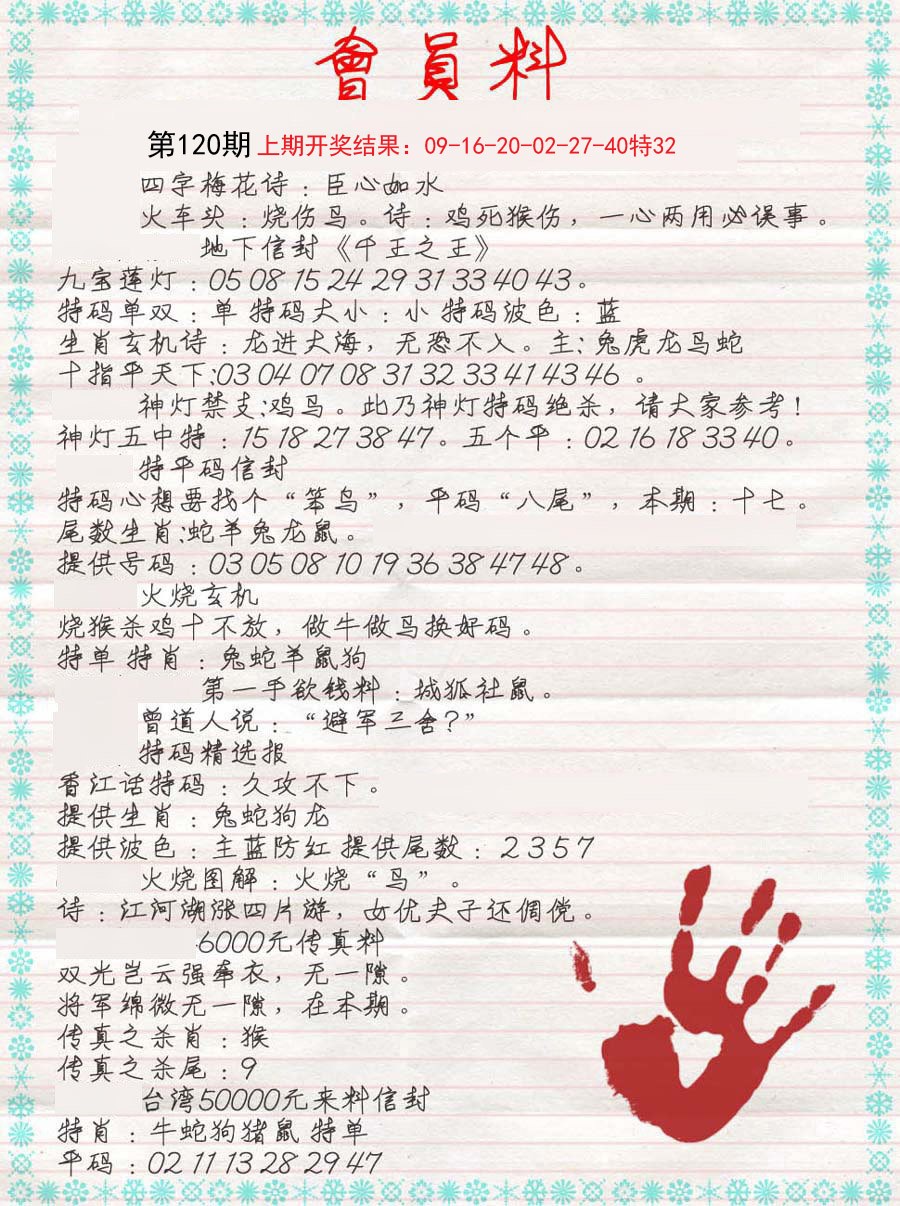 會員料
第120期 上期开奖结果：09-16-20-02-27-40特32
四字梅花诗：臣心如水
火车头：烧伤鸟。诗：鸡死猴伤，一心两用必误事。
地下信封《千王之王》
九宝莲灯：05 08 15 24 29 31 33 40 43。
特码单双：单 特码大小：小 特码波色：蓝
生肖玄机诗：龙进大海，无恐不入。主: 兔虎龙鸟蛇
十指平天下:03 04 07 08 31 32 33 41 43 46 。
神灯禁支:鸡鸟。此乃神灯特码绝杀，请大家参考！
神灯五中特：15 18 27 38 47。五个平：02 16 18 33 40。
特平码信封
特码心想要找个“笨鸟”，平码“八尾”，本期：十七。
尾数生肖:蛇羊兔龙鼠。
提供号码：03 05 08 10 19 36 38 47 48。
火烧玄机
烧猴杀鸡十不放，做牛做鸟换好码。
特单 特肖：兔蛇羊鼠狗
第一手欲钱料：城狐社鼠。
曾道人说：“避军三舍?”
特码精选报
香江话特码：久攻不下。
提供生肖：兔蛇狗龙
提供波色：主蓝防红 提供尾数：2 3 5 7
火烧图解：火烧“鸟”。
诗：江河湖涨四片游，女优夫子还倜傥。
6000元传真料
双光岂云强牵衣，无一隙。
将军绵微无一隙，在本期。
传真之杀肖：猴
传真之杀尾：9
台湾50000元来料信封
特肖：牛蛇狗猪鼠 特单
平码：02 11 13 28 29 47